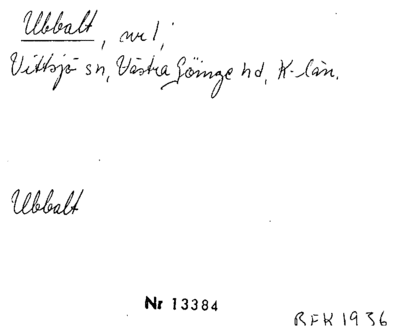 Ubbalt, nr 1,
Vittsjö sn, Västra Göinge hd, K-län.
Ubbalt
Nr 13384
RFK 1936